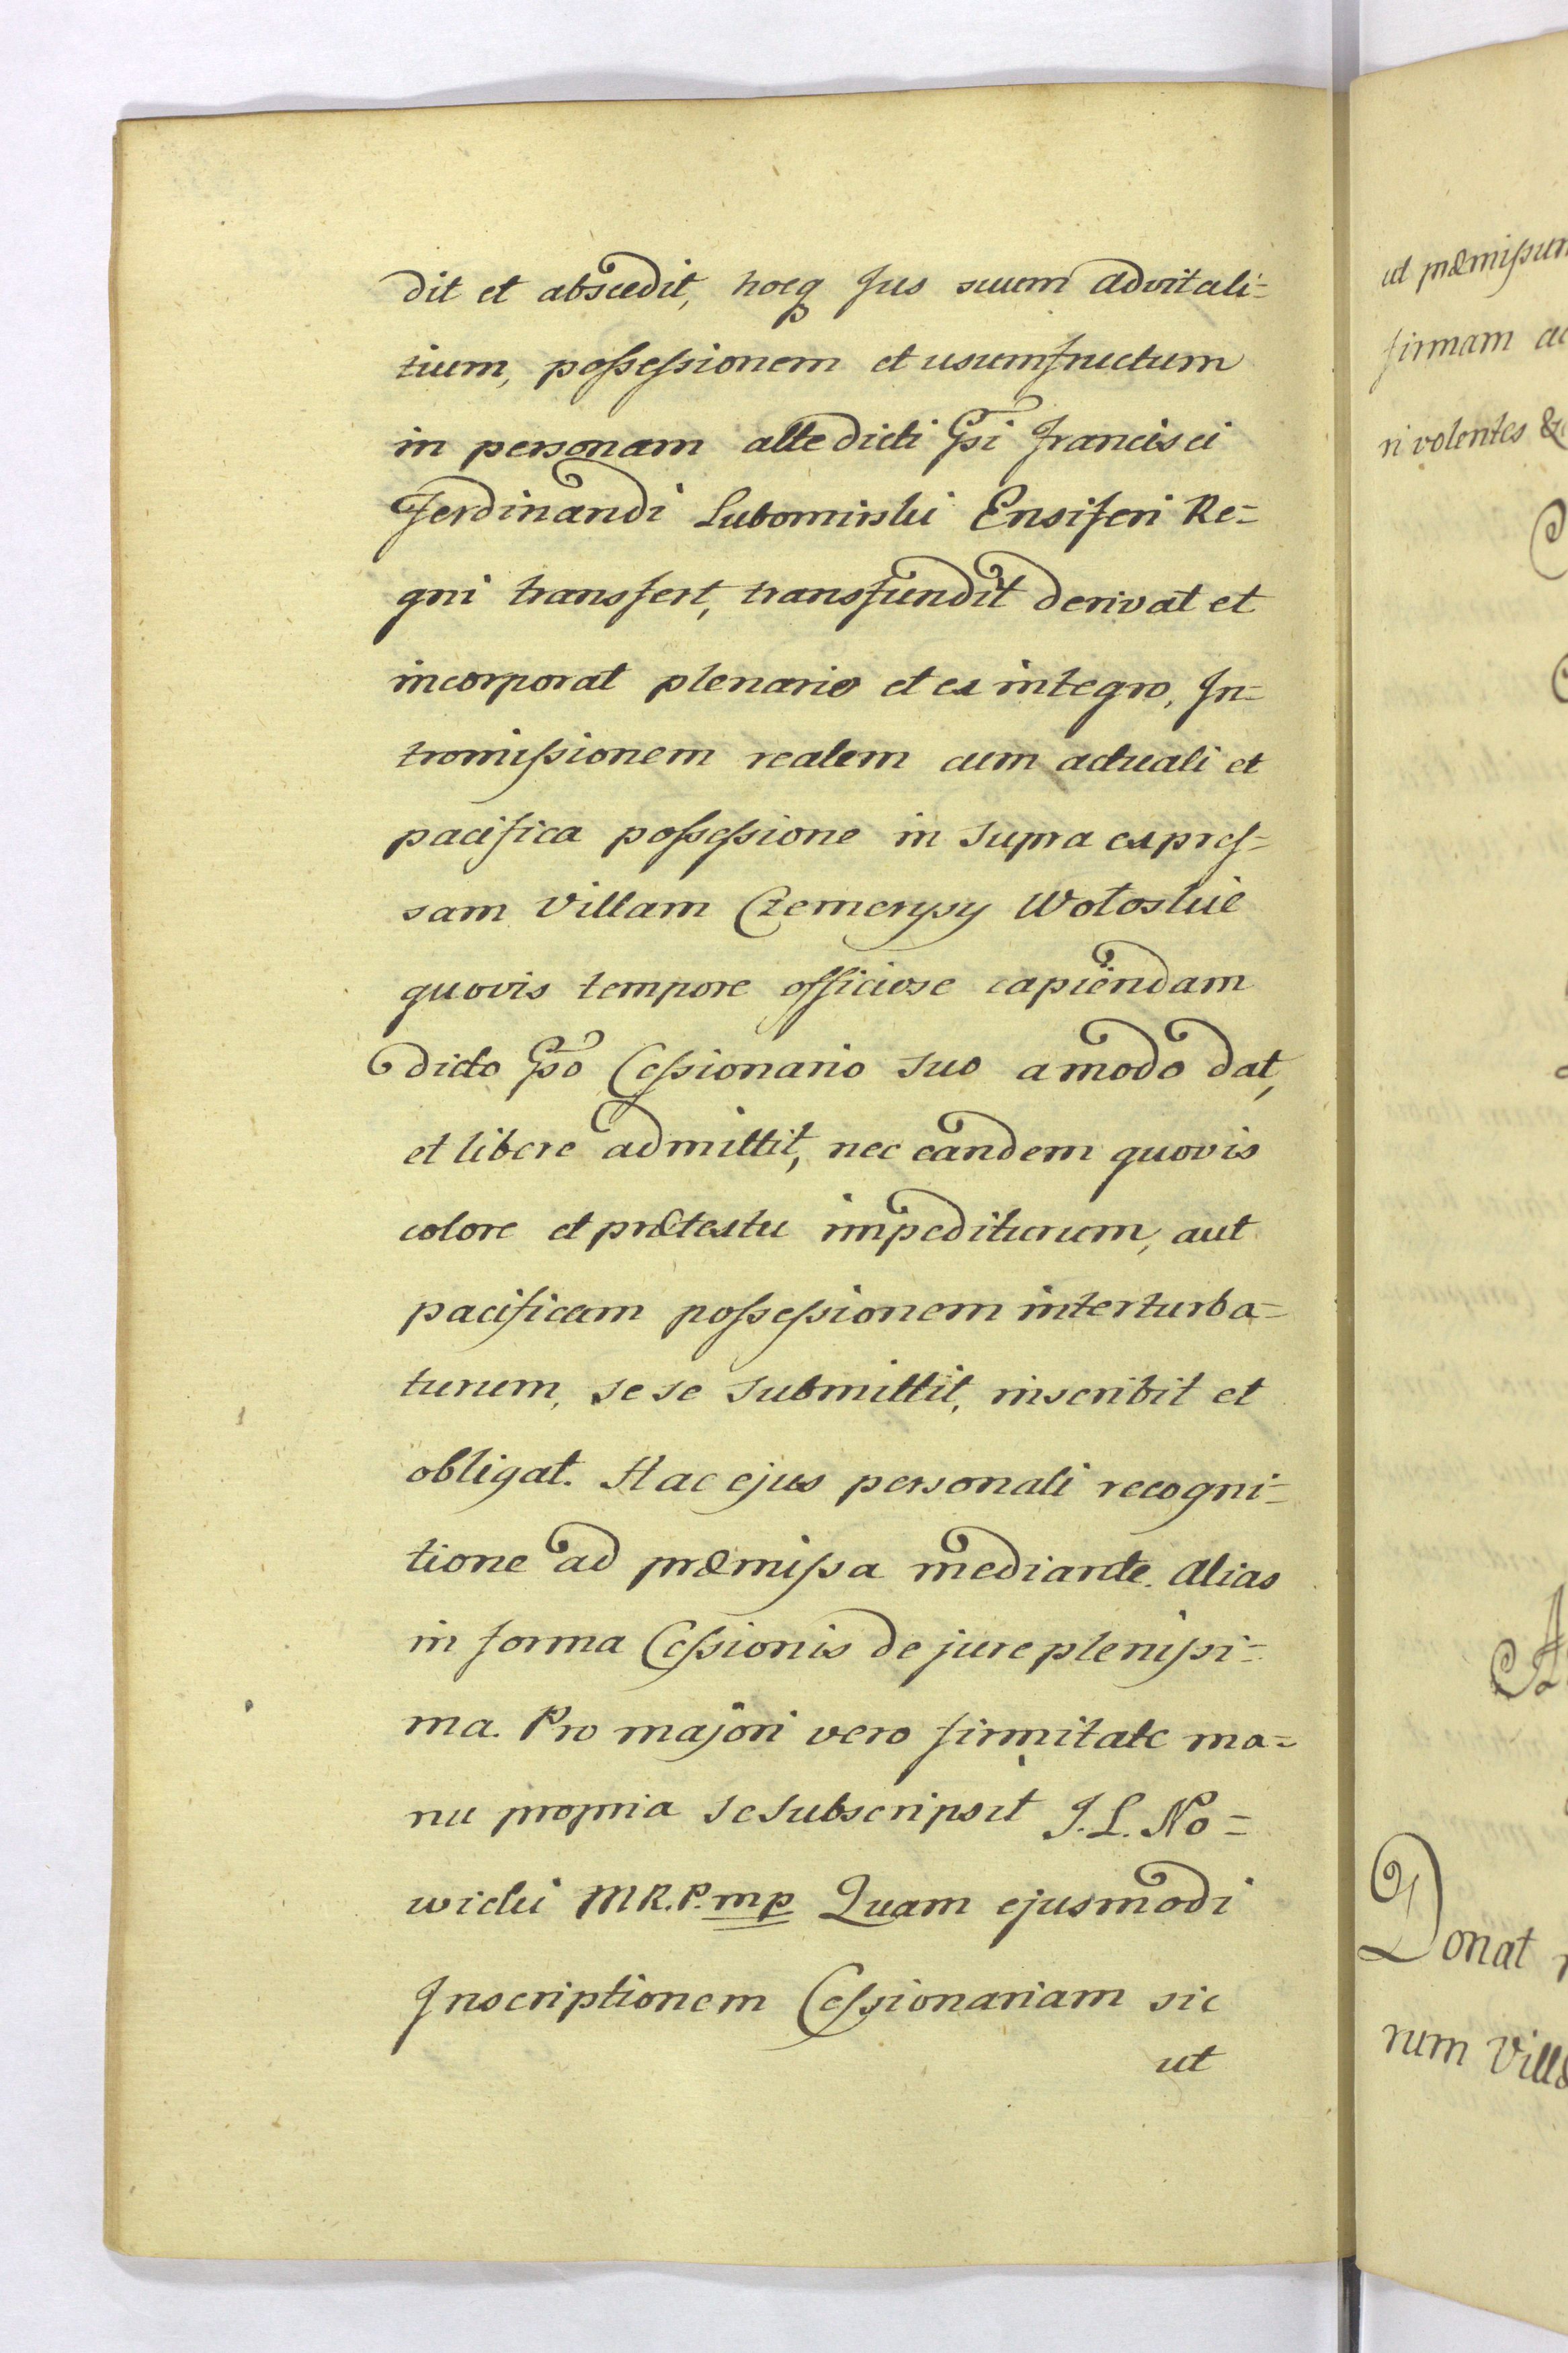 dit et abscedit, hocq Jus suum advitali=
tium, possessionem et usumfructum
in personam alte dicti Gsi Francisci
Ferdinandi Lubomirski Ensiferi Re=
gni transfert, transfundit derivat et
incorporat plenarie et ex integro, In=
tromissionem realem cum actuali et
pacifica possessione in supra expres=
sam Villam Czemerysy Wołoskie
quovis tempore officiose capiendam
dicto Gso Cessionario suo amodo dat,
et libere admittit, nec eandem quovis
colore et prætextu impediturum, aut
pacificam possessionem interturba=
turum, sese submittit, inscribit et
obligat. Hac ejus personali recogni=
tione ad præmissa mediante. Alias
in forma Cessionis de jure plenissi=
ma. Pro majori vero firmitate ma=
nu propria se subscripsit J. L. No=
wicki M R. P. mp Quam ejusmodi
Inscriptionem Cessionariam sic
ut
ut præmissum
firmam
ri volentes &
Donat
rum Villæ